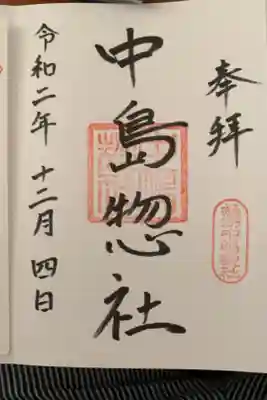 奉拝
中島惣社
令和二年十二月四日